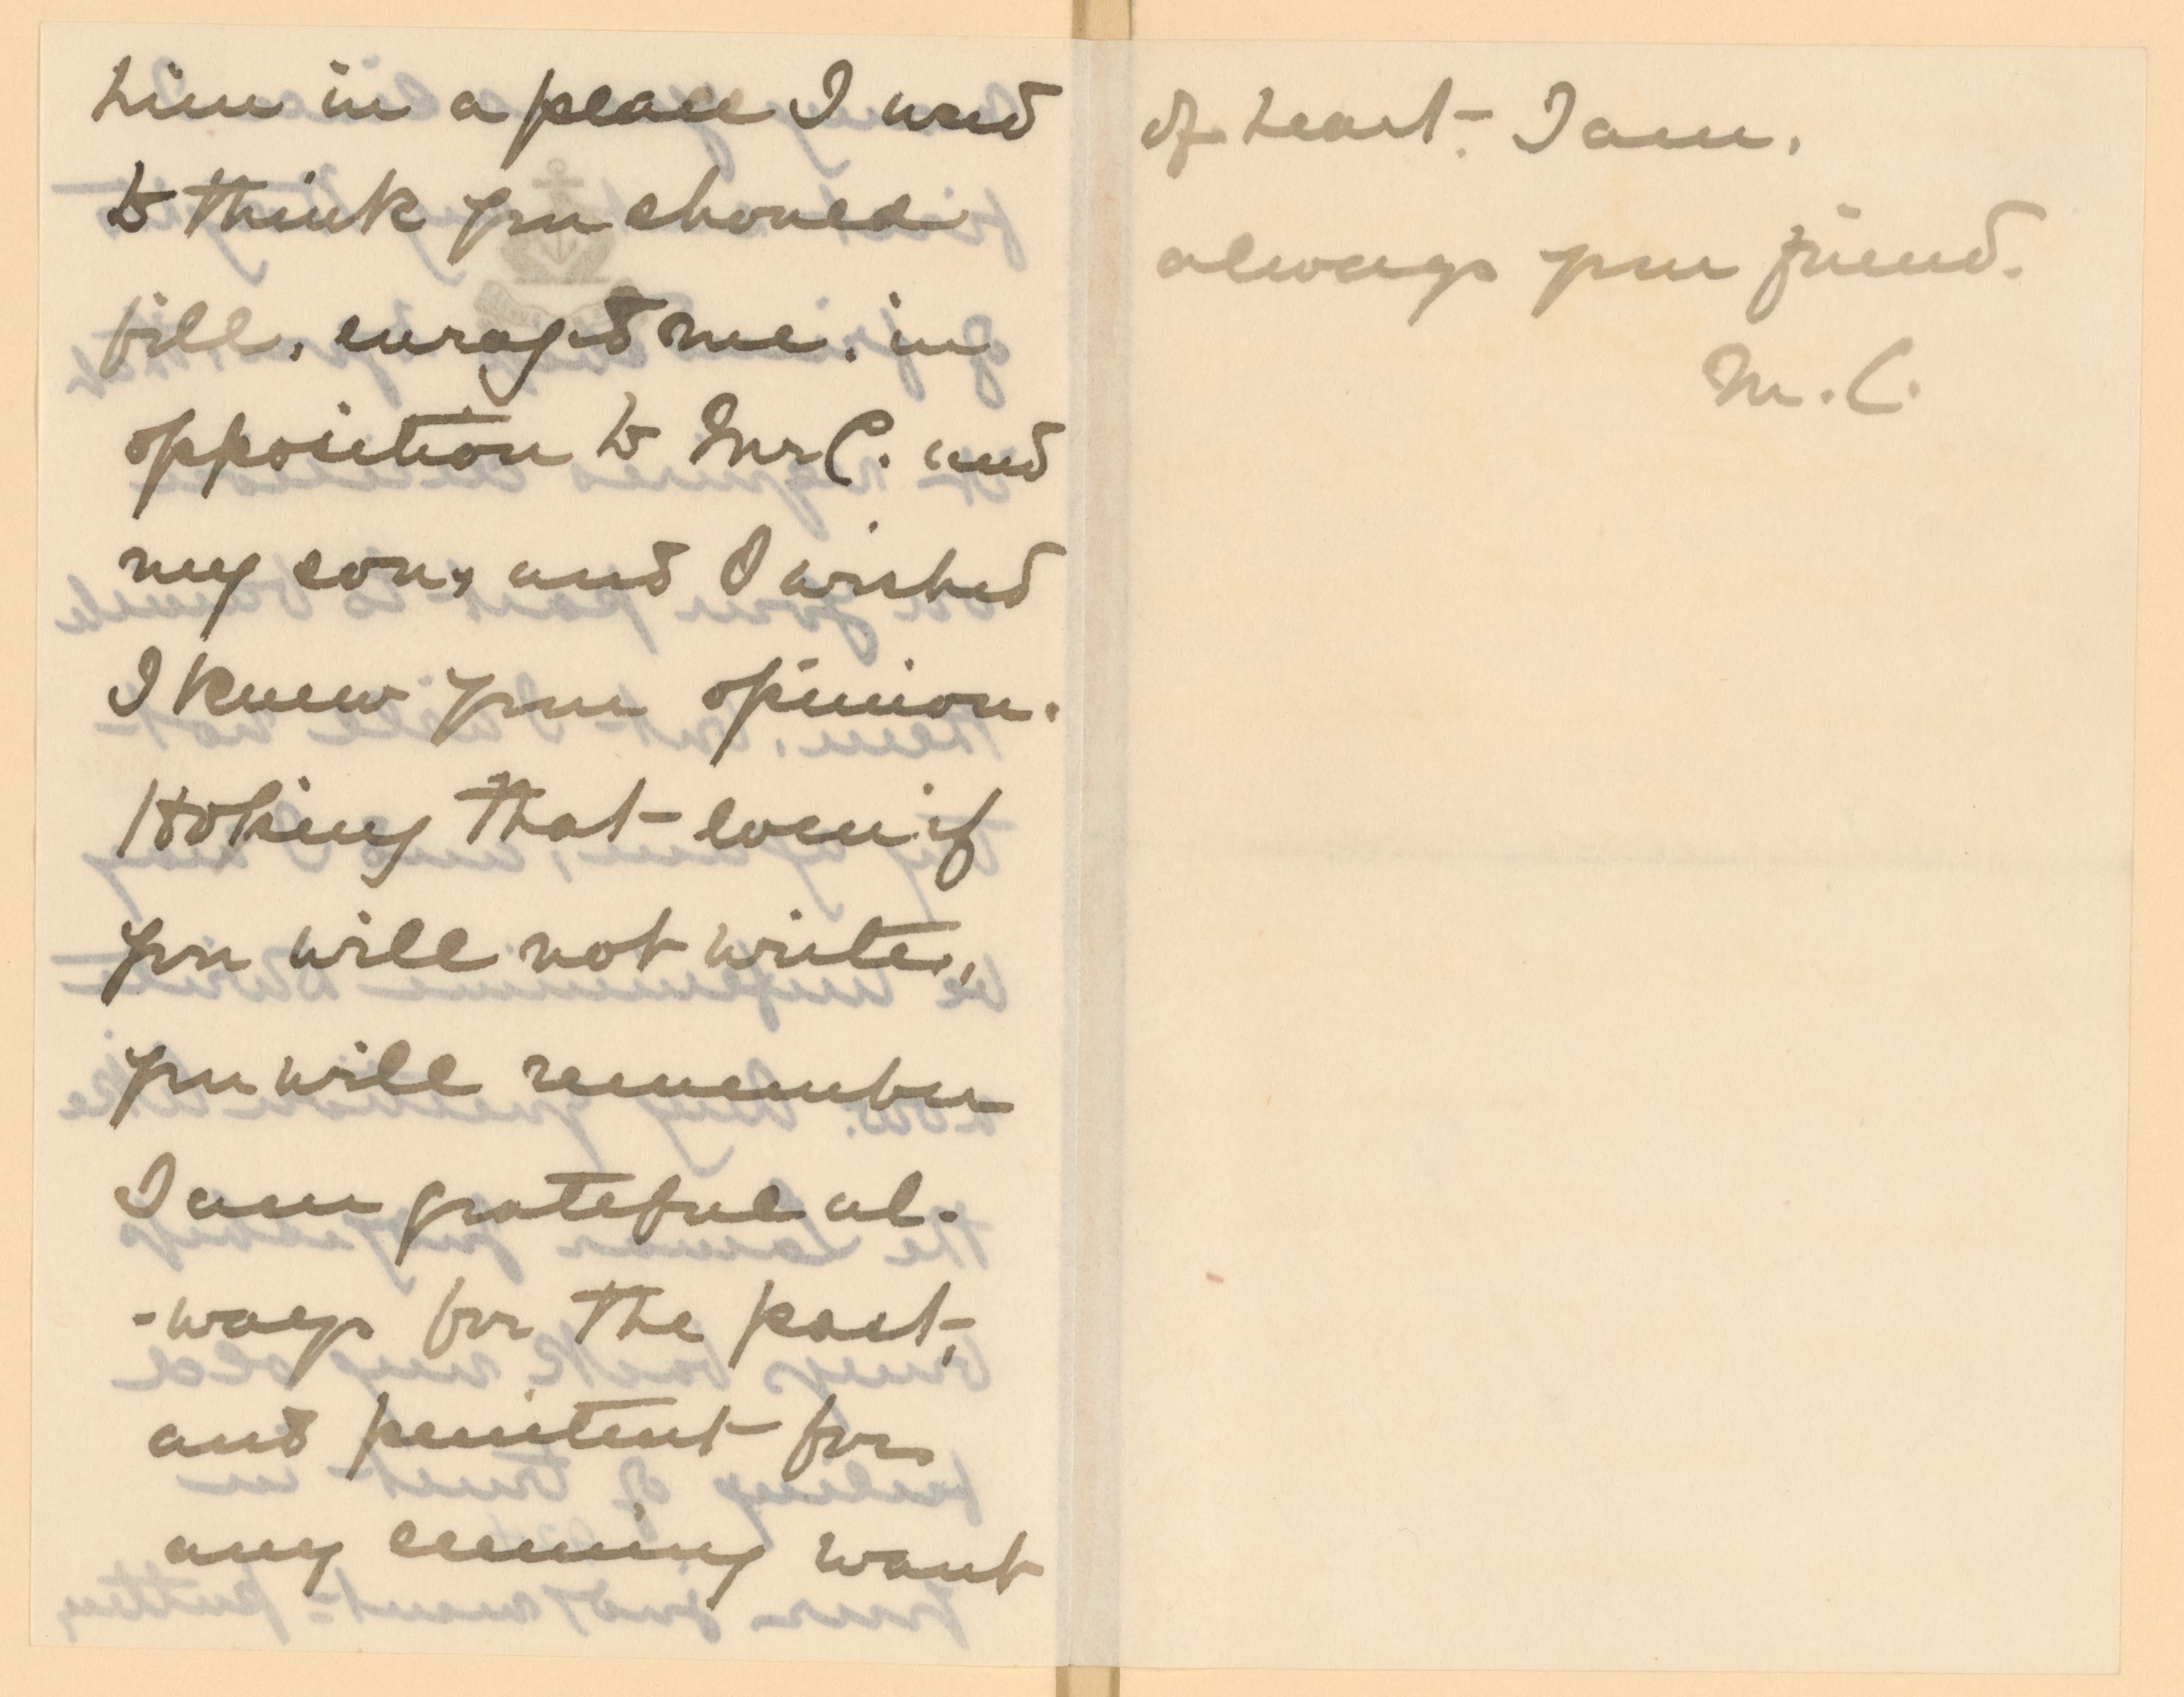 him in a place I used
to think you should
fill, enraged me, in
opposition to Mr C. and
my son, and I wished
I knew your opinion.
Hoping that even if
you will not write,
you will remember
I am grateful al-
-ways for the past,
and penitent for
any seeming want
of heart. I am.
always your friend.
M. C.